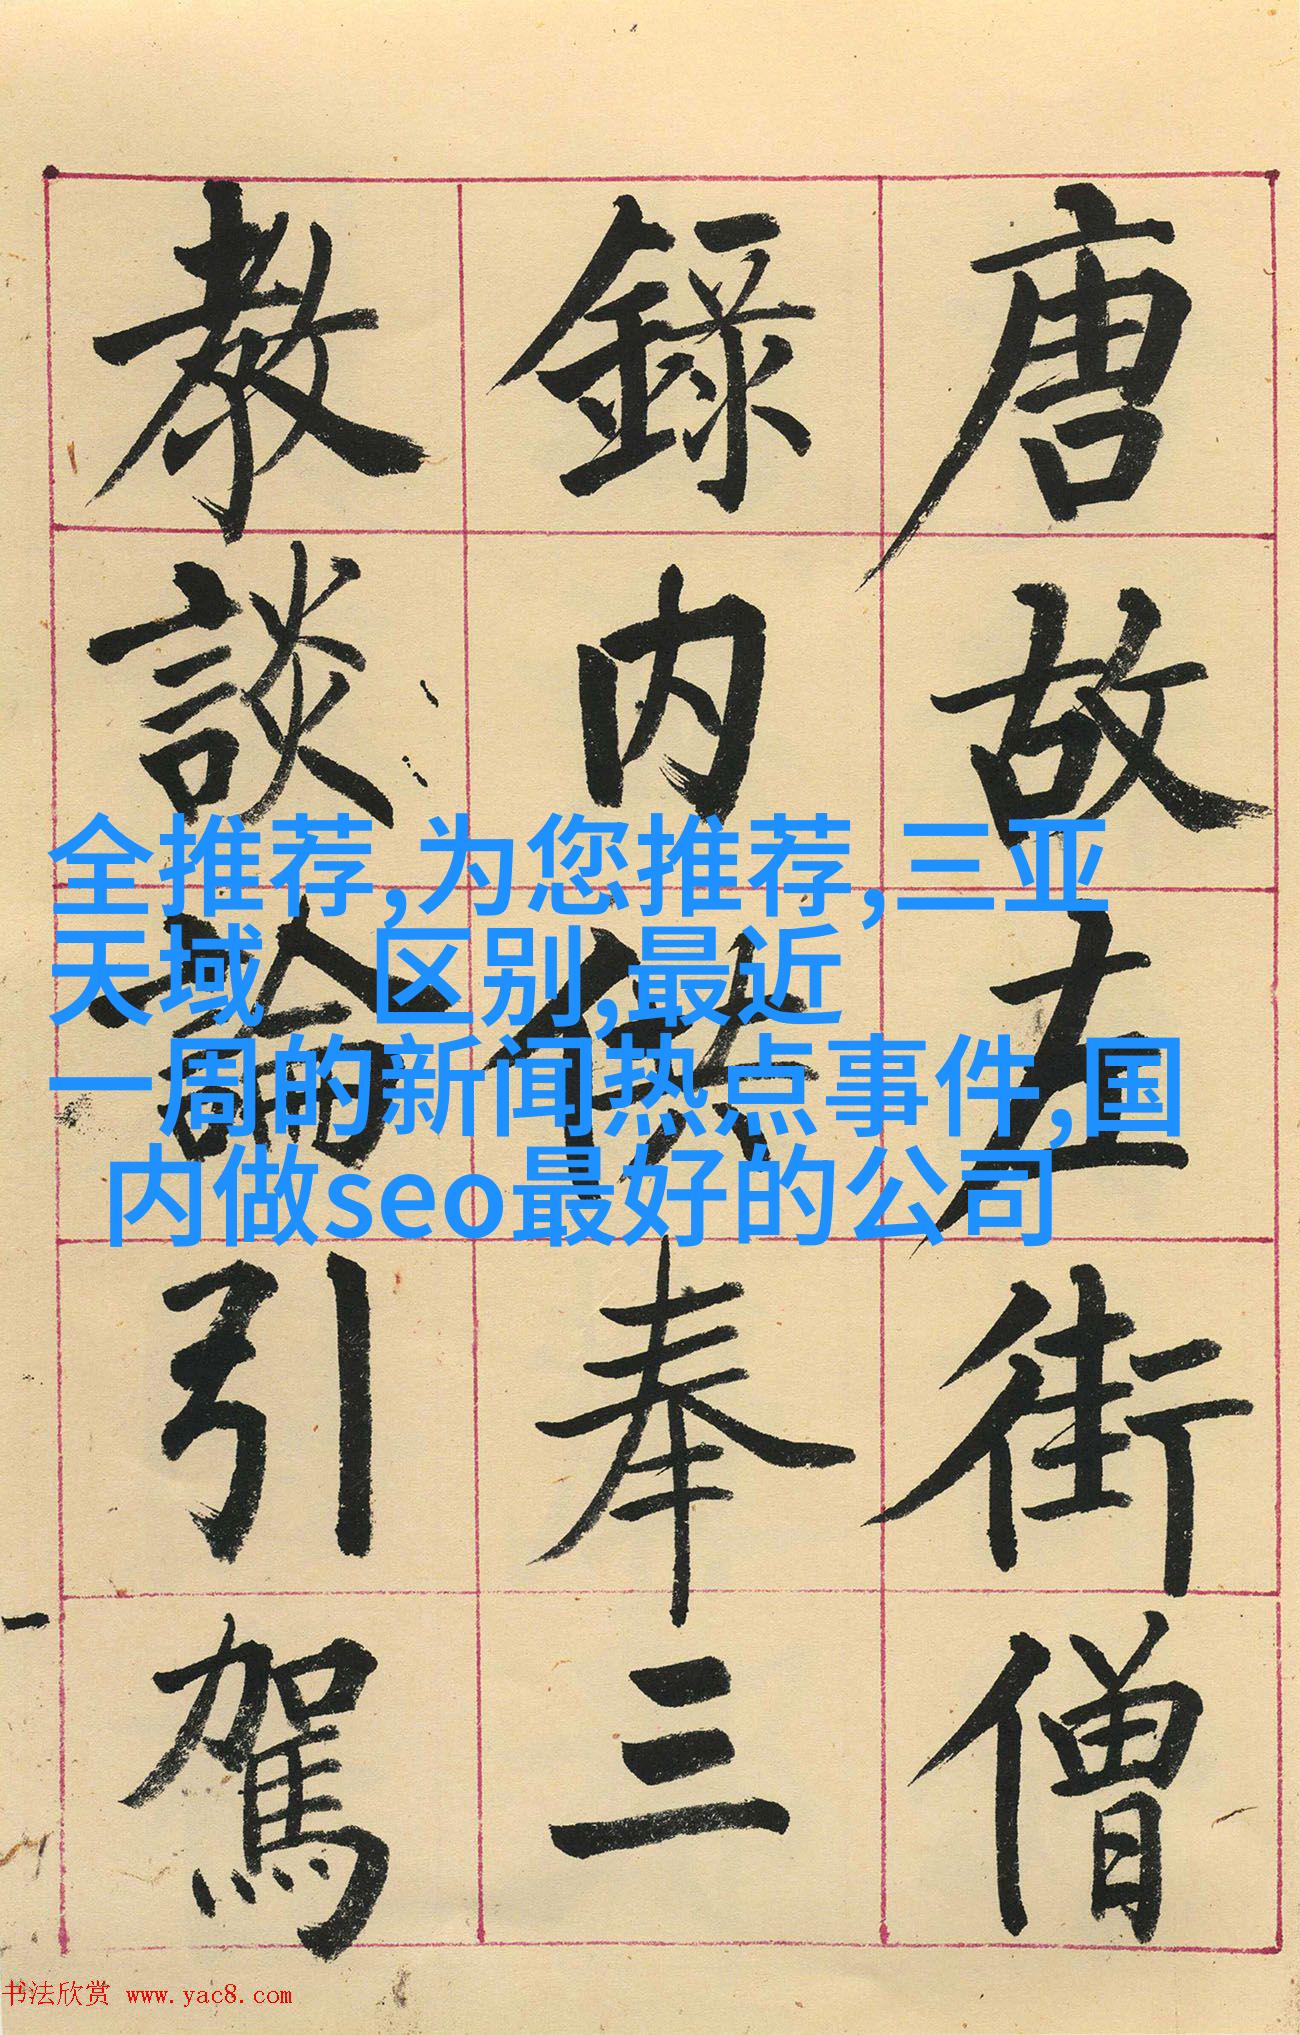 唐故左街僧
錄内供奉三
教談論引駕
全推荐,为您推荐,三亚
天域 区别,最近
一周的新闻热点事件,国
内做seo最好的公司
书法欣赏 www.yac8.com